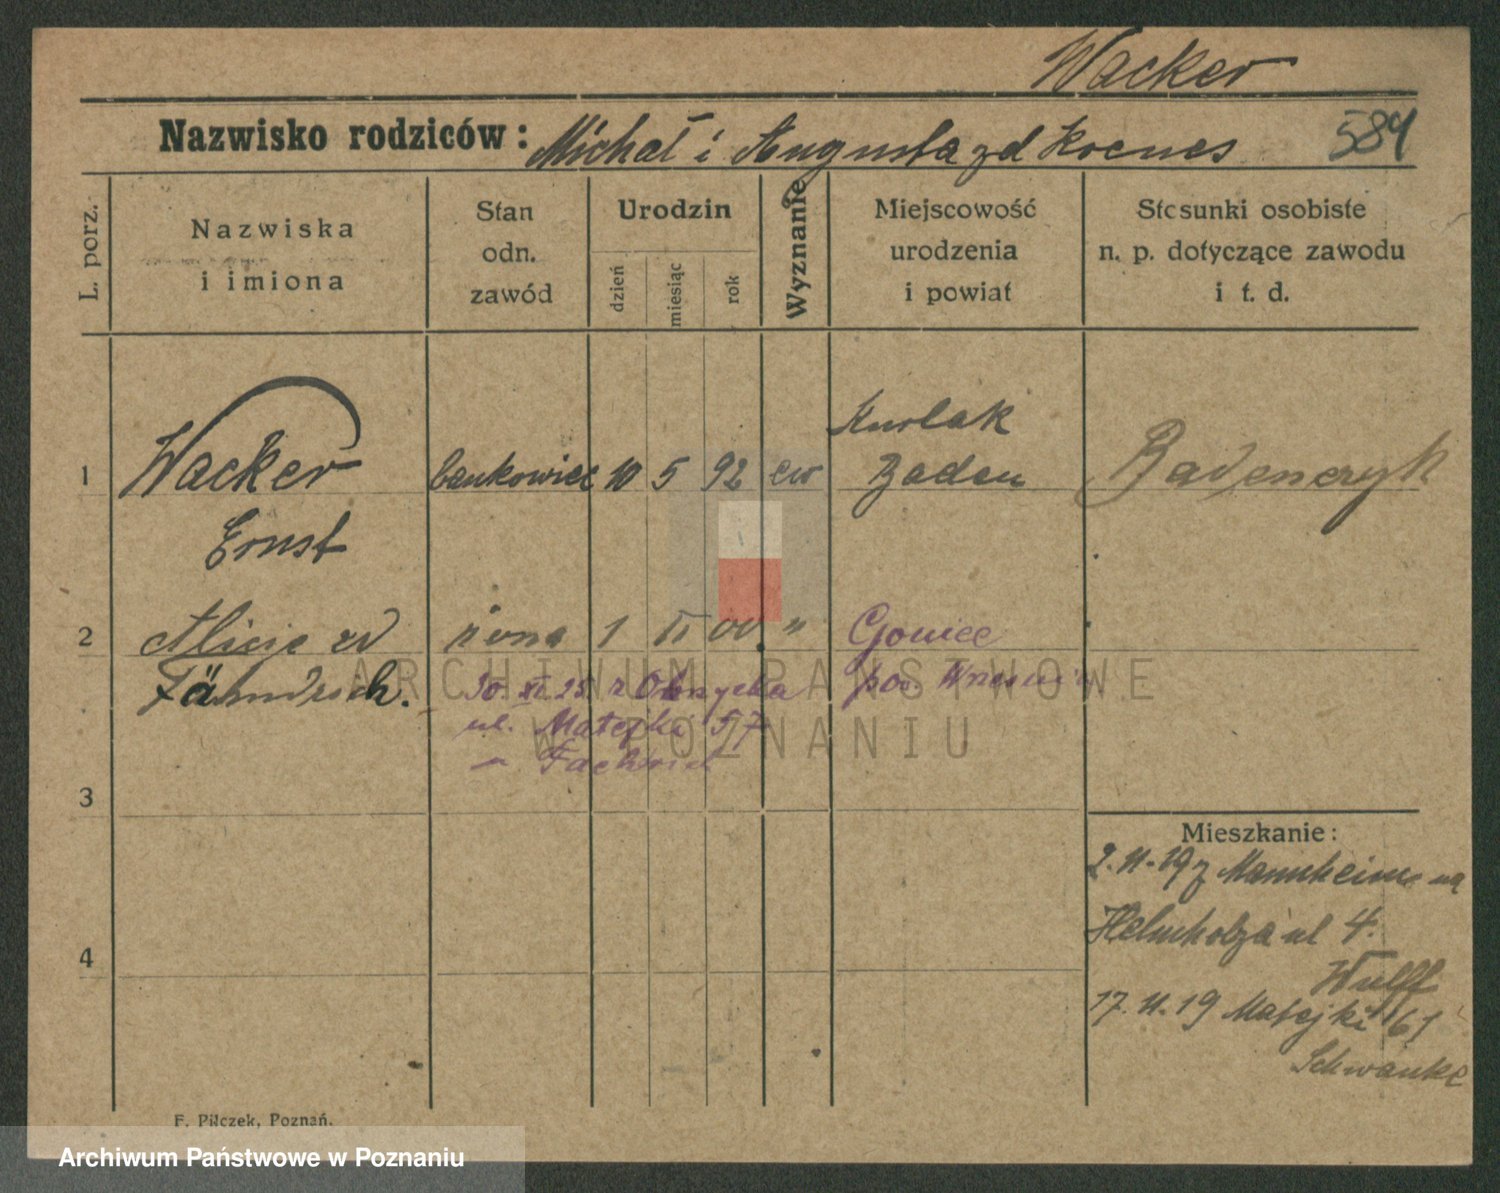 Wacker
Nazwisko rodziców: Michał i Augusta zd Kocnes 584
L. porz.
Nazwiska i imiona
Stan odn. zawód
Urodzin
dzień
miesiąc
rok
Wyznanie
Miejscowość urodzenia i powiat
Stosunki osobiste n. p. dotyczące zawodu i t. d.
1 Wacker bankowiec 10 5 92 ew Baden Badenczyk
Ernst
2 Alicja zd żona 1 II 00. " Goniec
Fähndrich. 30. XI. 25 z Obrzycka pow
ul. Matejki 57
3
4
Mieszkanie:
2.11.19 z Mannheim na
Helmholza ul 4.
Wulff
17.11.19 Matejki 61
Schwanke
F. Pilczek, Poznań.
ARCHIWUM PAŃSTWOWE
W POZNANIU
Archiwum Państwowe w Poznaniu